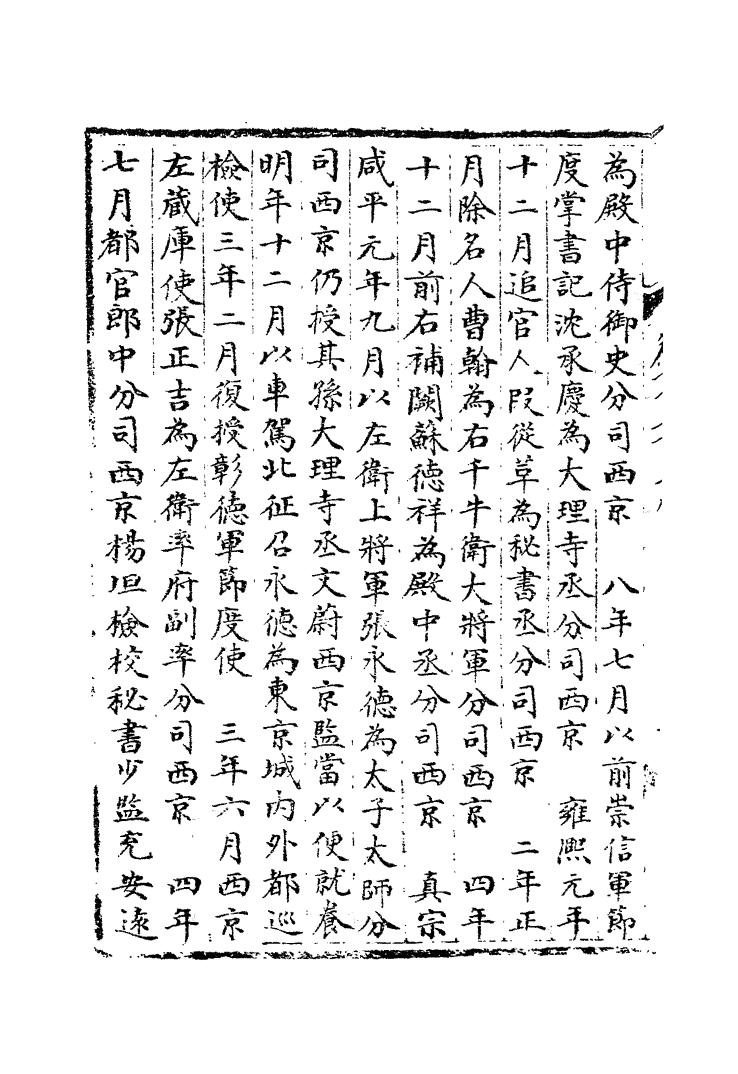 為殿中侍御史分司西京　八年七月以前崇信軍節
度掌書記沈承慶為大理寺丞分司西京　雍熈元年
十二月追官人段從草為秘書丞分司西京　二年正
月除名人曹翰為右千牛衛大將軍分司西京　四年
十二月前右補闕蘇德祥為殿中丞分司西京　真宗
咸平元年九月以左衛上將軍張永德為太子太師分
司西京仍授其孫大理寺丞文蔚西京監當以便就養
明年十二月以車駕北征召永德為東京城內外都巡
檢使三年二月復授彰德軍節度使　三年六月西京
左藏庫使張正吉為左衛率府副率分司西京　四年
七月都官郎中分司西京楊坦檢校秘書少監充安遠